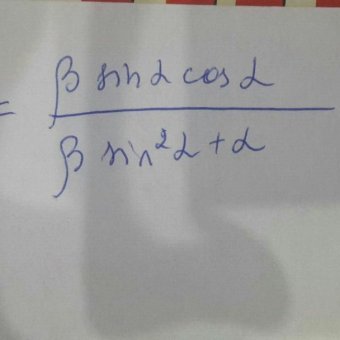 = β sin α cos α
β sin² α + α